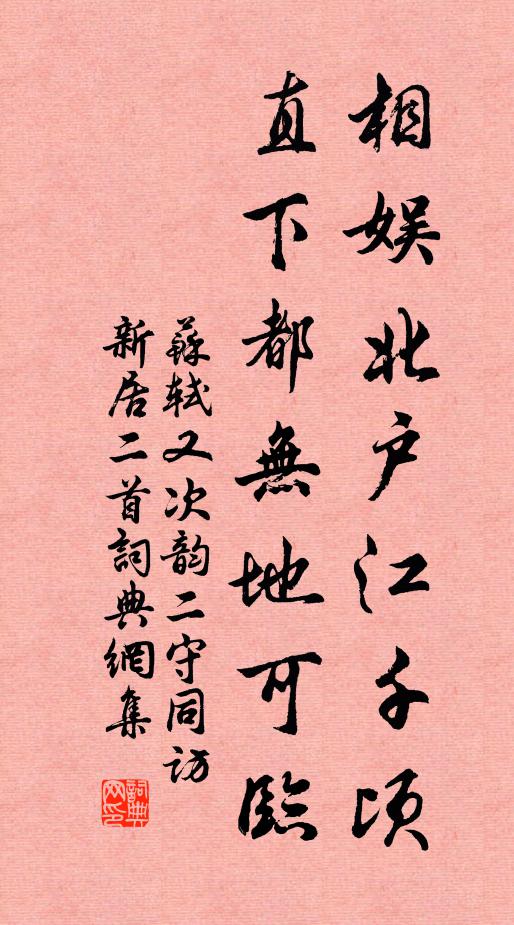 相娱北户江千顷
直下都無地可臨
蘇軾又次韵二守同访
新居二首詞典網集
詞典网印